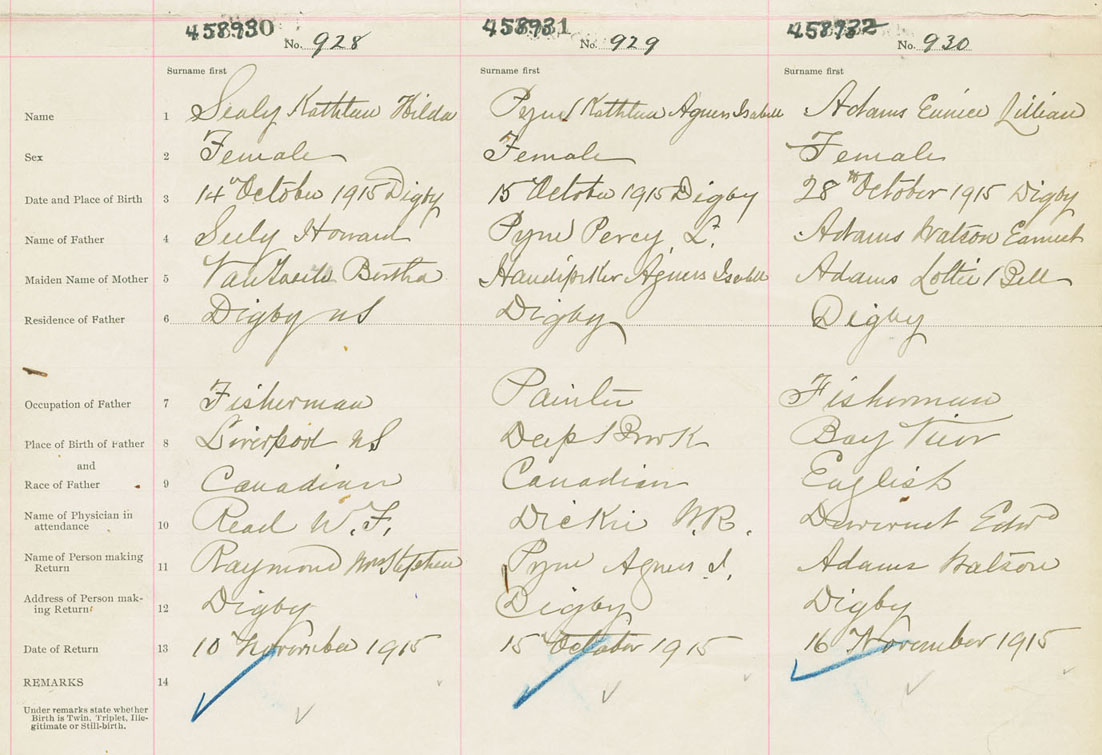 458930 458931 458932
No. 928 No. 929 No. 930
Surname first Surname first Surname first
Name 1 Sealy Kathleen Hilda Pyne Kathleen Agness Isabell Adams Eunice Lillian
Sex 2 Female Female Female
Date and Place of Birth 3 14" October 1915 Digby 15 October 1915 Digby 28th October 1915 Digby
Name of Father 4 Seely Howard Pyne Percy L. Adams Watson
Maiden Name of Mother 5 Bertha Agness Isabell Adams Lottie Bell
Residence of Father 6 Digby NS Digby Digby
Occupation of Father 7 Fisherman Painter Fisherman
Place of Birth of Father 8 Liverpool NS Deep Brook Bay View
and
Race of Father 9 Canadian Canadian English
Name of Physician in
attendance 10 Read W. F. Dickie W.R. Edwd
Name of Person making
Return 11 Raymond Mrs Stephen Pyne Agness I. Adams Watson
Address of Person mak-
ing Return 12 Digby Digby Digby
Date of Return 13 10 November 1915 15 October 1915 16 November 1915
REMARKS 14
Under remarks state whether
Birth is Twin, Triplet, Ille-
gitimate or Still-birth.